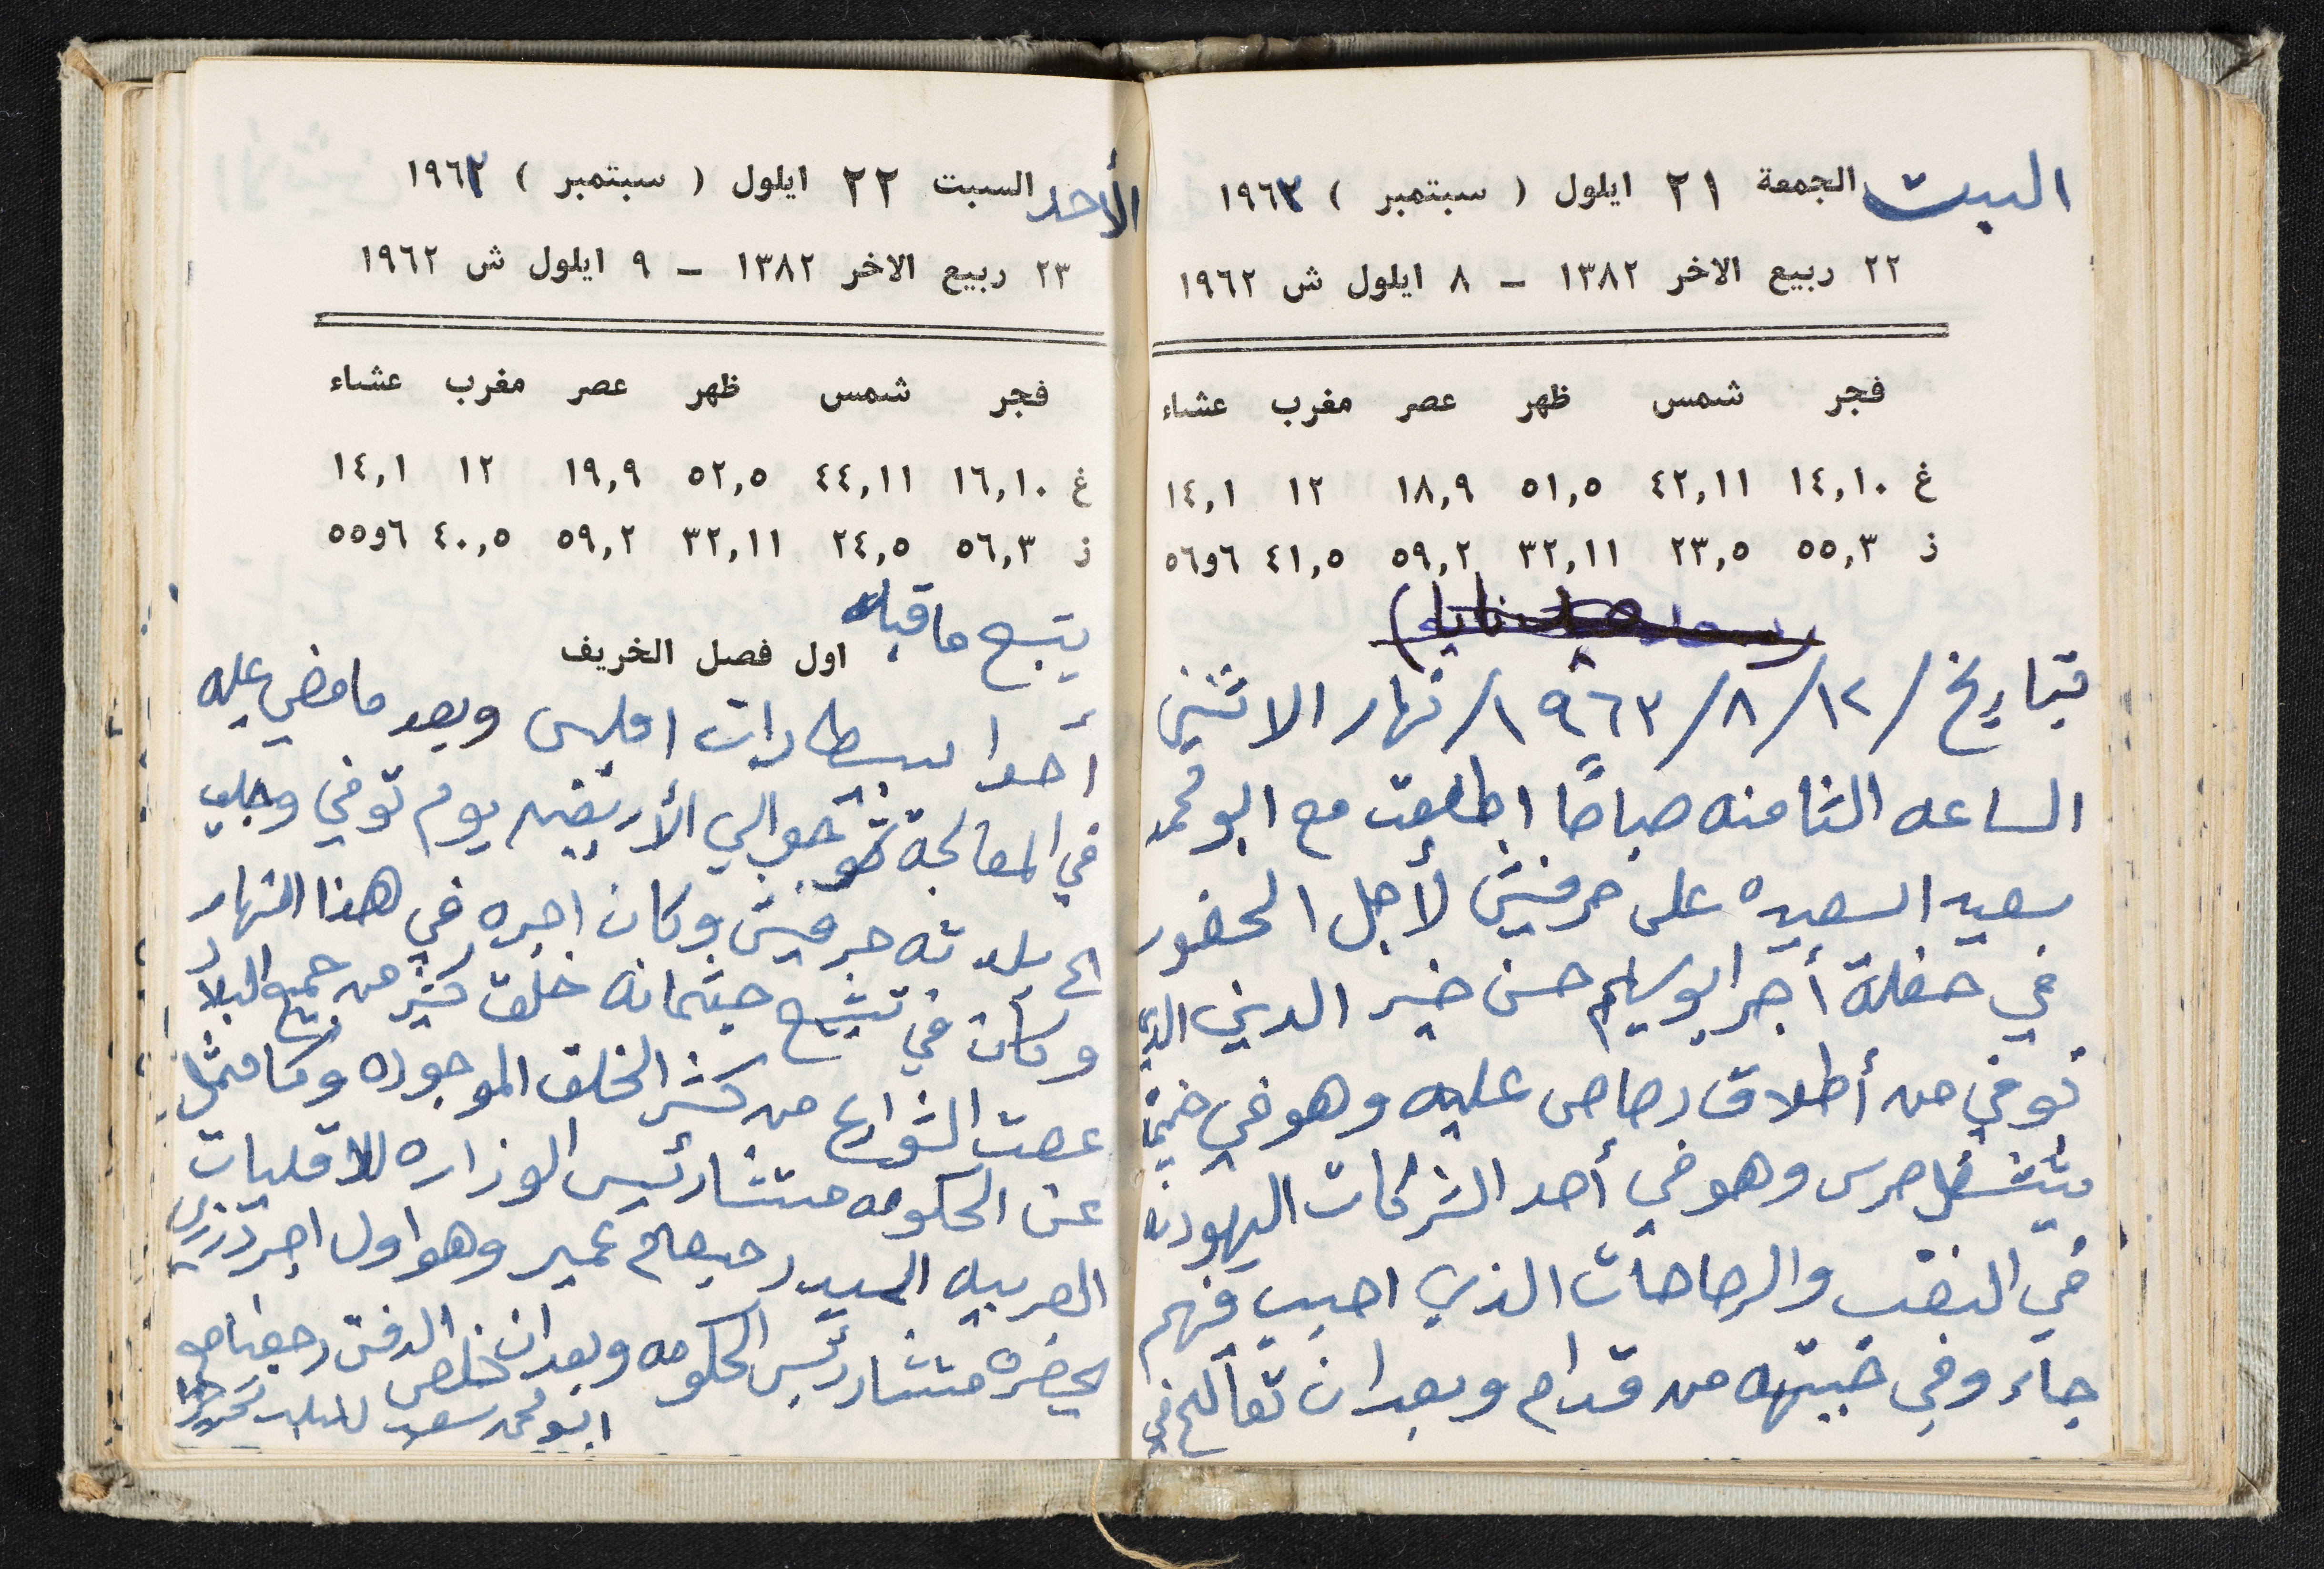 السبت الجمعة ٢١ ايلول ( سبتمبر ) ١٩٦٣
٢٢ ربيع الاخر ١٣٨٢ – ٨ ايلول ش ١٩٦٢
فجر شمس ظهر عصر مغرب عشاء
غ ١٤,١٠ ٤٢,١١ ٥١,٥ ١٨,٩ ١٢ ١٤,١
ز ٥٥,٣ ٢٣,٥ ٣٢,١١ ٥٩,٢ ٤١,٥ ٥٦و٦
بتاريخ /١٢/ ٨/ ١٩٦٣/ نهار الاثنين
الساعه الثامنه صباحًا اطلعت مع ابو محمد
سعيد السعيده على حرفيش لأجل الحضور
في حفلة أجر ابو سليم حسن خير الدين الذي
توفي من أطلاق رصاص عليه وهو في
يشتغل حرس وهو في أحد الشركات اليهوديه
في النقب والرصاصات الذي اصيب فيهم
جاء وفي خبيتهه من قدام وبعد ان تعالج في
الأحد السبت ٢٢ ايلول ( سبتمبر ) ١٩٦٣
٢٣ ربيع الاخر ١٣٨٢ – ٩ ايلول ش ١٩٦٢
فجر شمس ظهر عصر مغرب عشاء
غ ١٦,١٠ ٤٤,١١ ٥٢,٥ ١٩,٩ ١٢ ١٤,١
ز ٥٦,٣ ٢٤,٥ ٣٢,١١ ٥٩,٢ ٤٠,٥ ٥٥و٦
يتبع ما قبله
اول فصل الخريف
أحدا سبيطارات وبعد ما مضي عليه
في المعالجة حوالي الأربعين يوم توفي وجلب
الى بلدته حرفيش وكان اجره في هذا النهار
وكان في تشيع جثمانه خلق كثير من جميع البلاد
عصت الشوارع من كثر الخلق الموجوده وكا ممثل
عن الحكومه مستشار رئيس الوزاره للاقليات
العربيه السيد رحبعام عمير وهو اول اجر درزي
يحضره مستشار رئيس الحكومه وبعد ان خلص الدفن رجعنا مع
ابو محمد سعيد للبلد